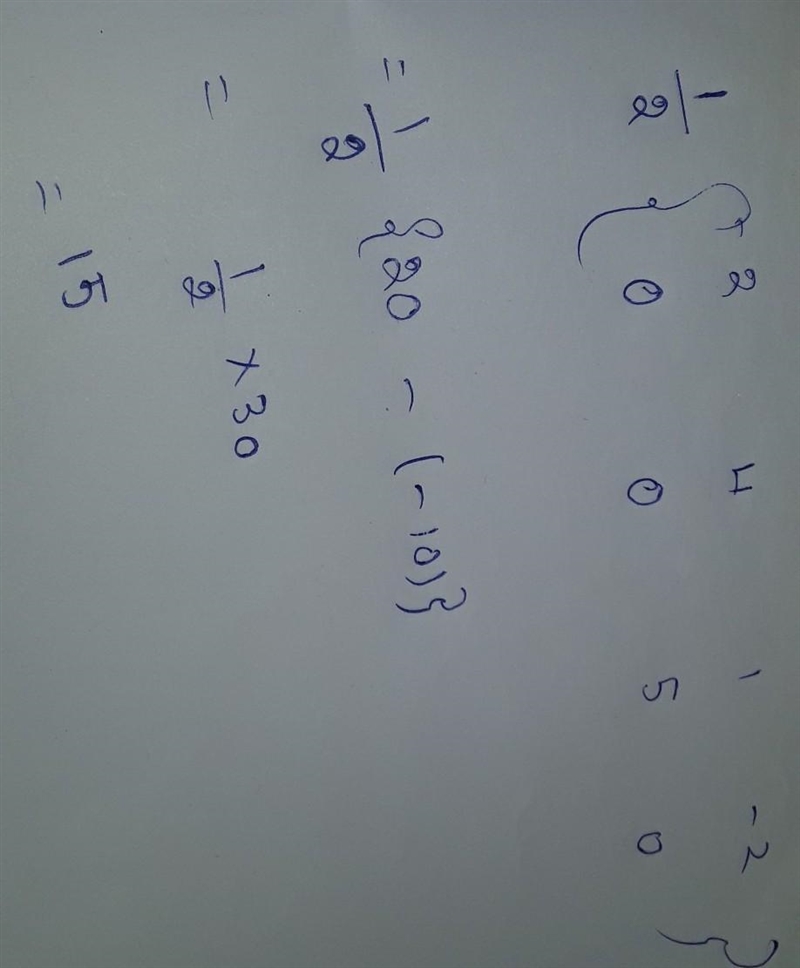 1/2 { -2 4 1 -2 }
0 0 5 0
= 1/2 {20 - (-10)}
= 1/2 × 30
= 15